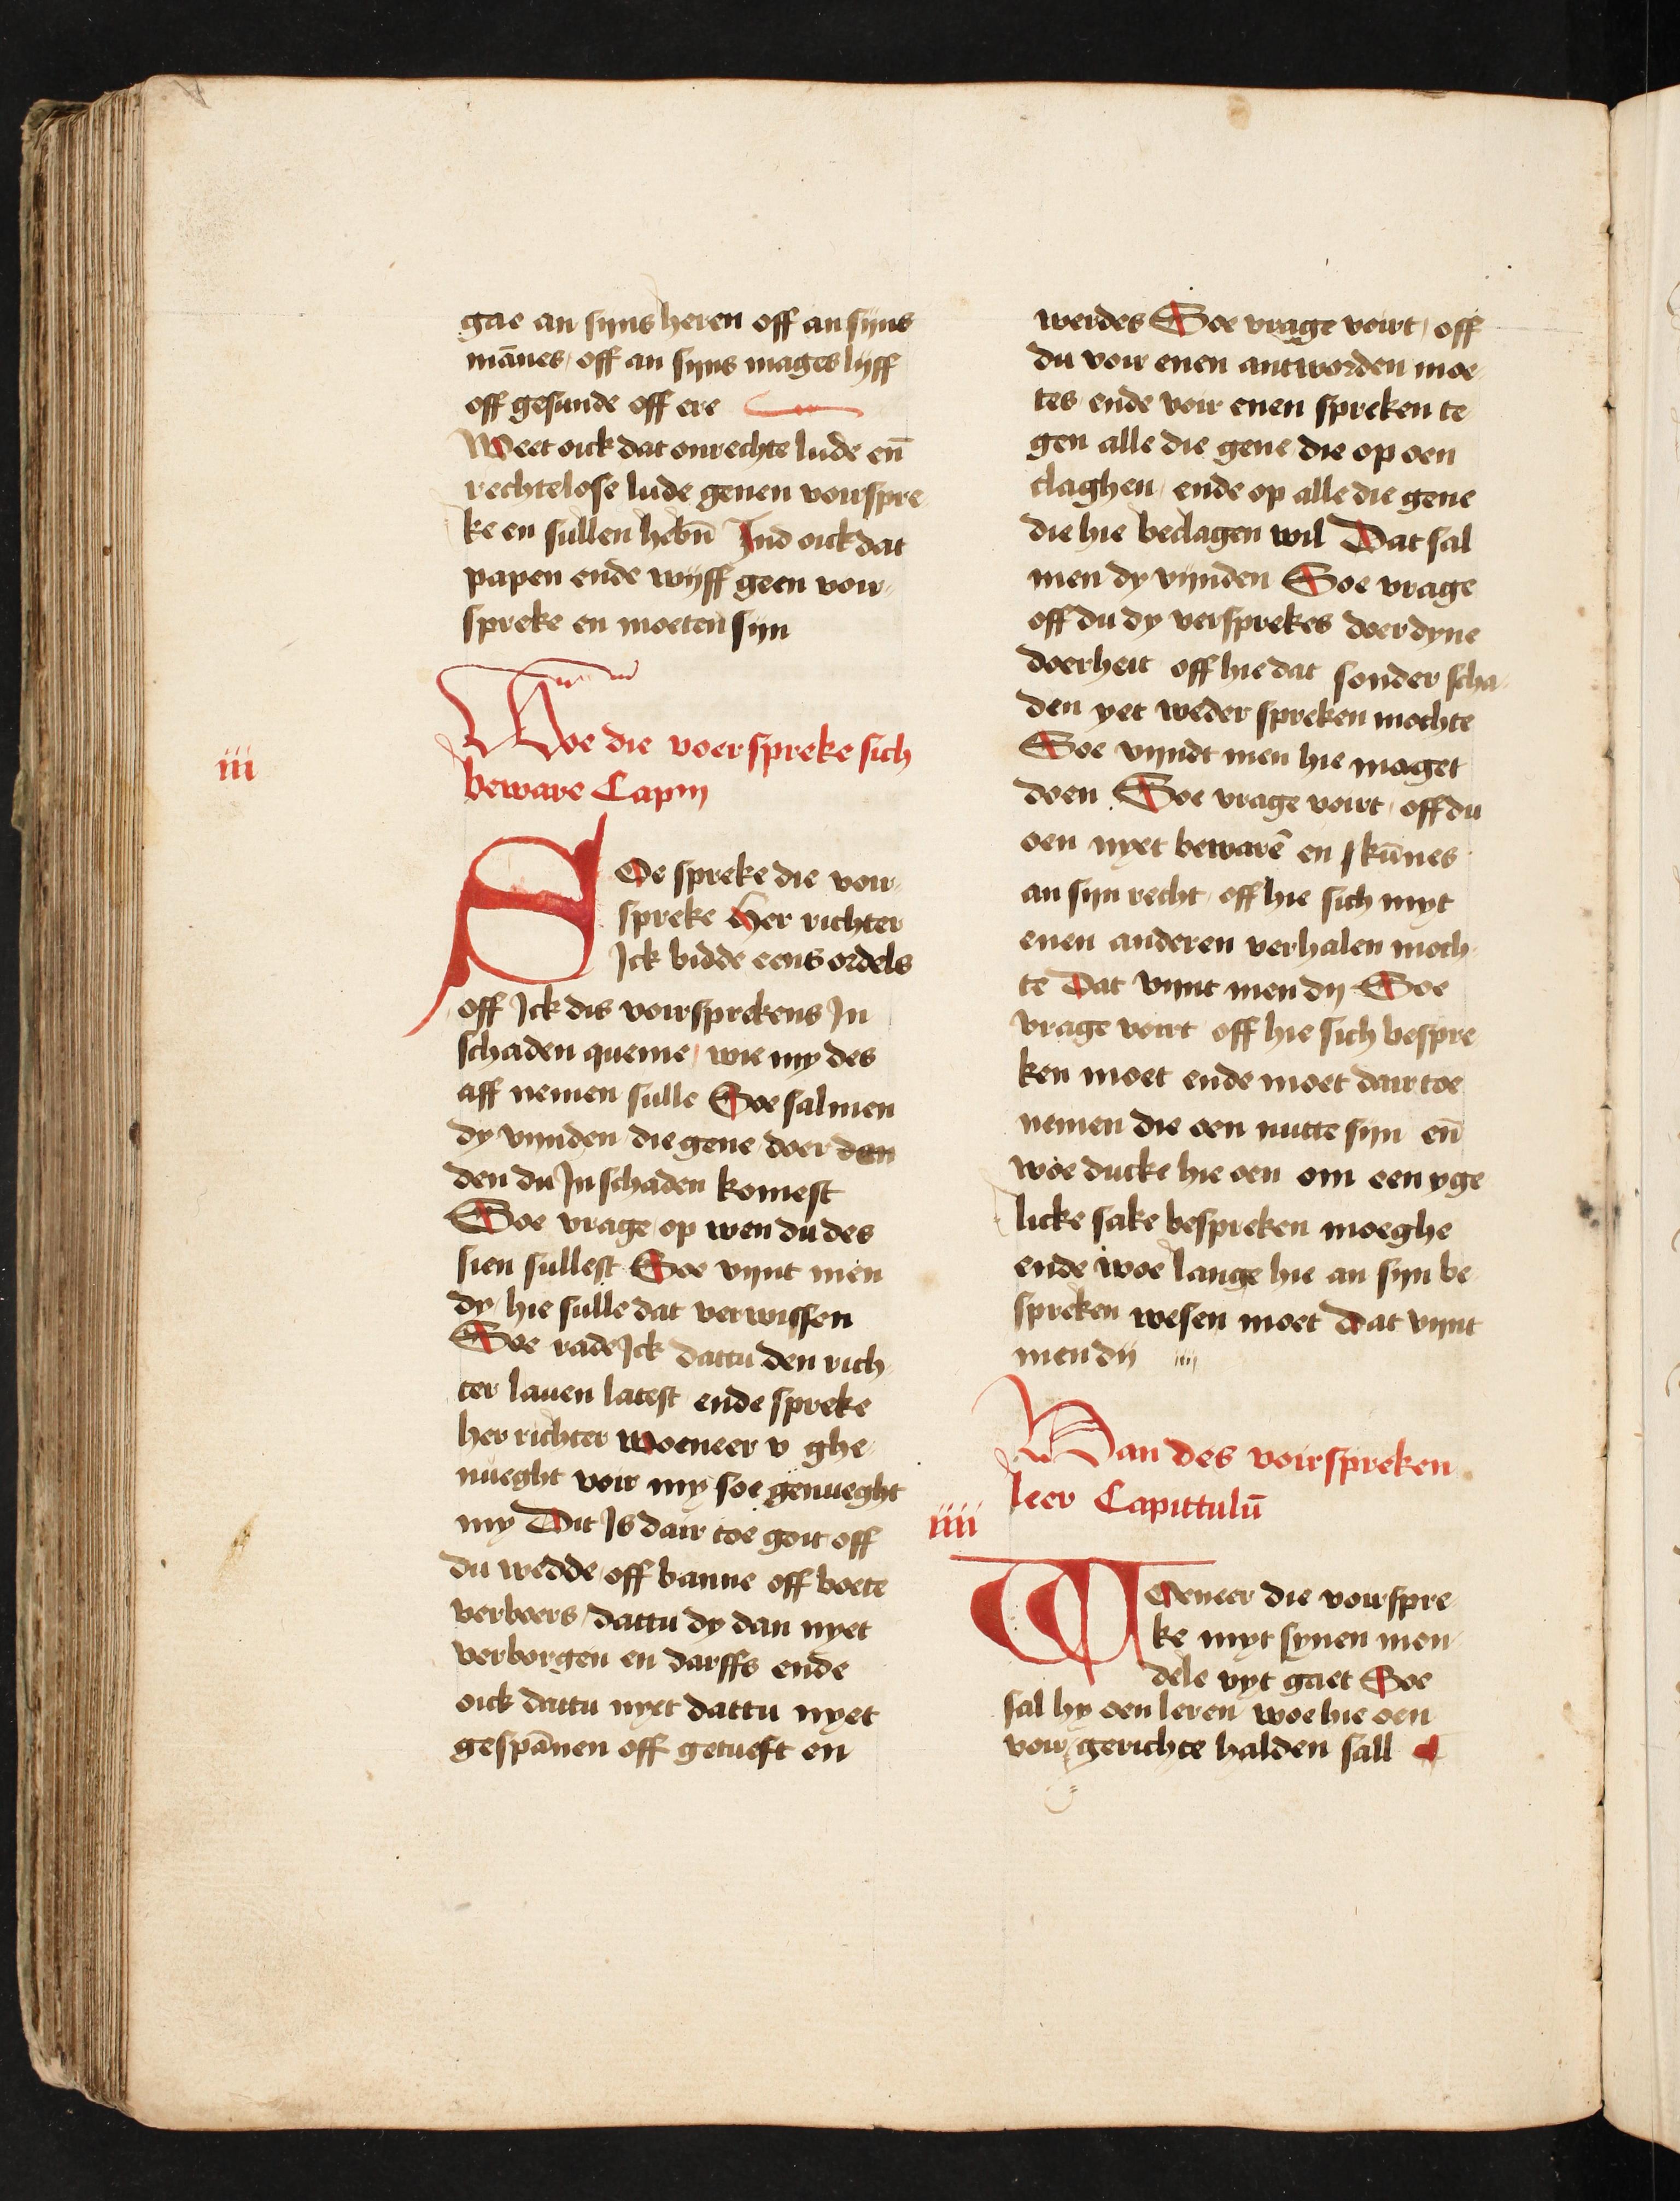 gae an sijns heren off an sijns
mānes off an sijns mages lijff
off gesunde off ere
Weet oick dat onrechte lude en̄
rechtelose lude genen voirspre
ke en sullen hebn̄ Ind oick dat
papen ende wijff geen voir-
spreke en moeten sijn
iii
Woe die voerspreke sich
beware Capm
SOe spreke die voir-
spreke Her richter
Ick bidde eens ordels
off Ick dis voirsprekens In
schaden queme wie my des
aff nemen sulle Soe sal men
dy vijnden die gene doer den
den du In schaden komest
Soe vrage op wen du des
sien sullest Soe vijnt men
dy hie sulle dat verwissen
Soe rade Ick dattu den rich
ter lauen latest ende spreke
her richter woeneer v ghe-
nueght voir my soe genueght
my Dit Is dair toe goit off
du wedde off banne off boete
verboers dattu dy dan nyet
verborgen en darffs ende
oick dattu nyet dattu nyet
gespānen off getueft en
werdes Soe vrage voirt off
du voir enen antworden moe-
tes ende voir enen spreken te
gen alle die gene die op oen
claghen ende op alle die gene
die hie beclagen wil Dat sal
men dy vijnden Soe vrage
off du dy versprekes doer dyne
doerheit off hie dat sonder scha-
den yet weder spreken mochte
Soe vijndt men hie moget
doen Soe vrage voirt off du
oen nyet bewarē en skūnes
an sijn recht off hie sich myt
enen anderen verhalen moch-
te Dat vijnt men dij Soe
vrage voirt off hie sich bespre
ken moet ende moet dair toe
nemen die oen nutte sijn en̄
woe ducke hie oen om een yge
licke sake bespreken moeghe
ende woe lange hie an sijn be
spreken wesen moet Dat vijnt
men dij
Van des voirspreken
leer Capittulū
iiii
WOeneer die voirspre
ke myt synen mon-
dele vyt gaet Soe
sal hy oen leren woe hie oen
voir gerichte halden sall